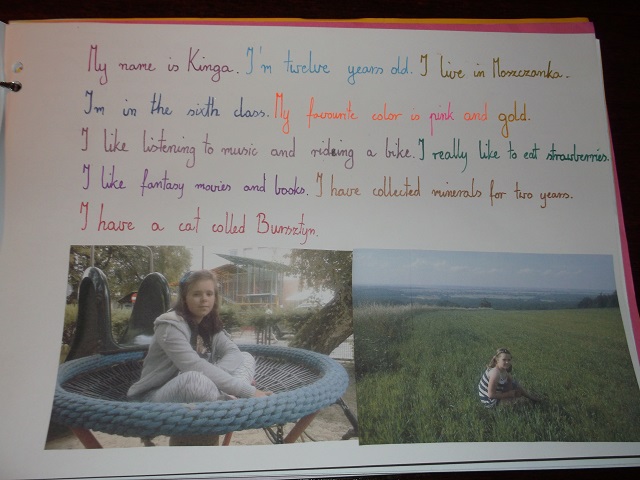 My name is Kinga. I'm twelve years old. I live in Moszczanka.
I'm in the sixth class. My favourite color is pink and gold.
I like listening to music and rideing a bike. I really like to eat strawberries.
I like fantasy movies and books. I have collected minerals for two years.
I have a cat called Bursztyn.